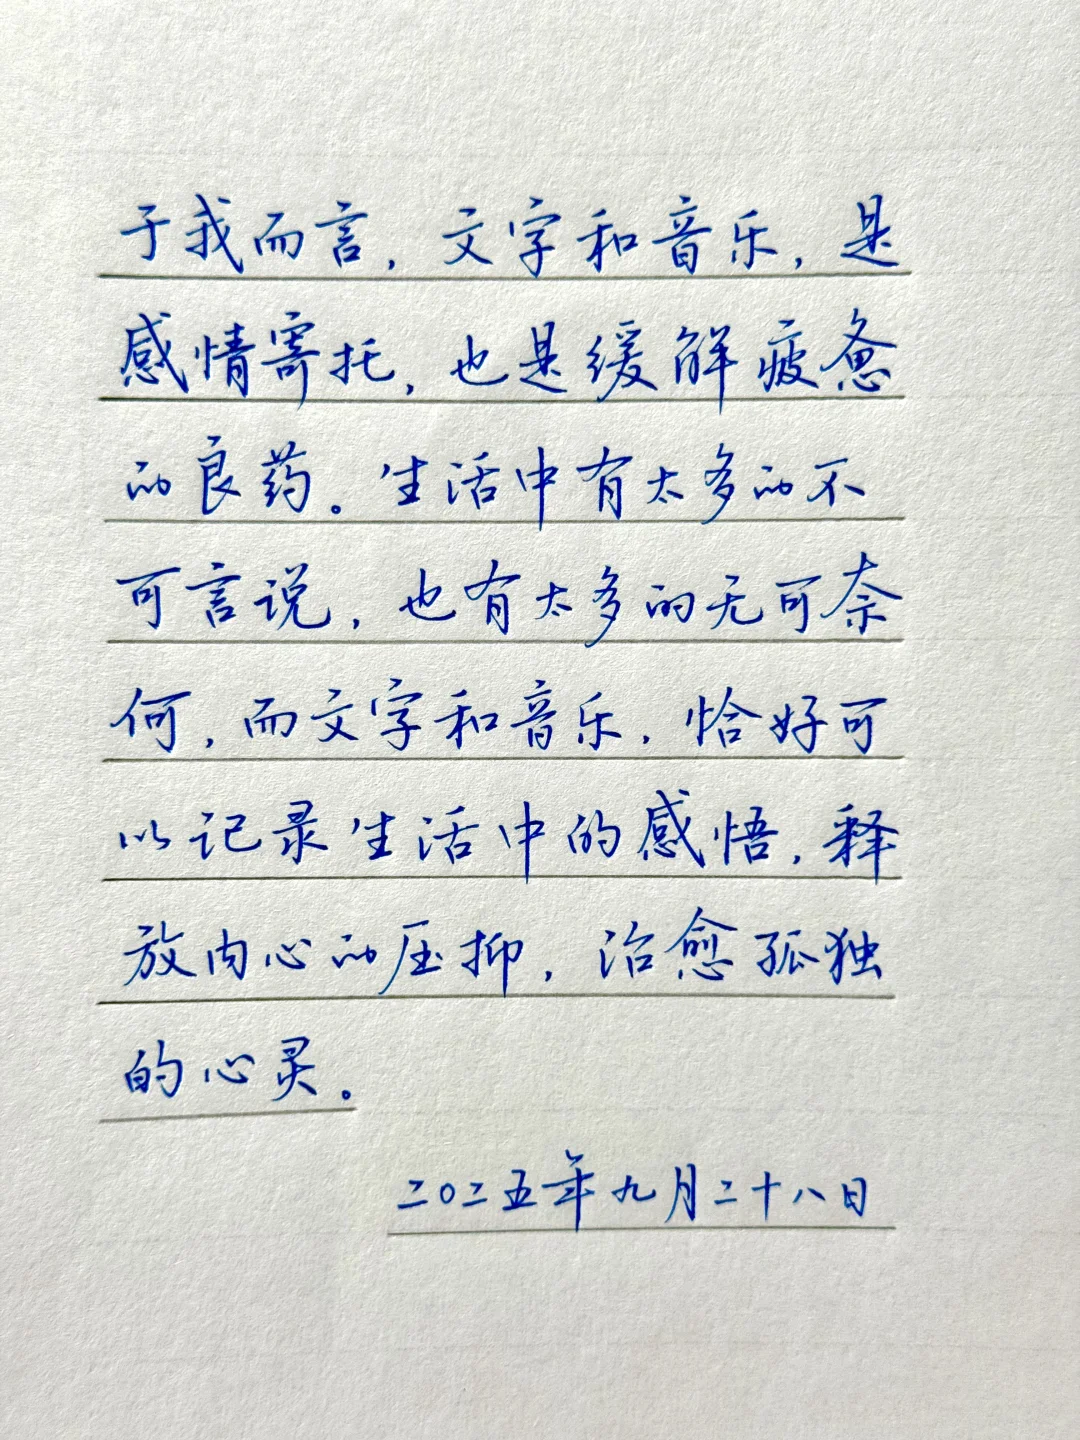 于我而言，文字和音乐，是
感情寄托，也是缓解疲惫
的良药。生活中有太多的不
可言说，也有太多的无可奈
何，而文字和音乐，恰好可
以记录生活中的感悟，释
放内心的压抑，治愈孤独
的心灵。
二〇二五年九月二十八日